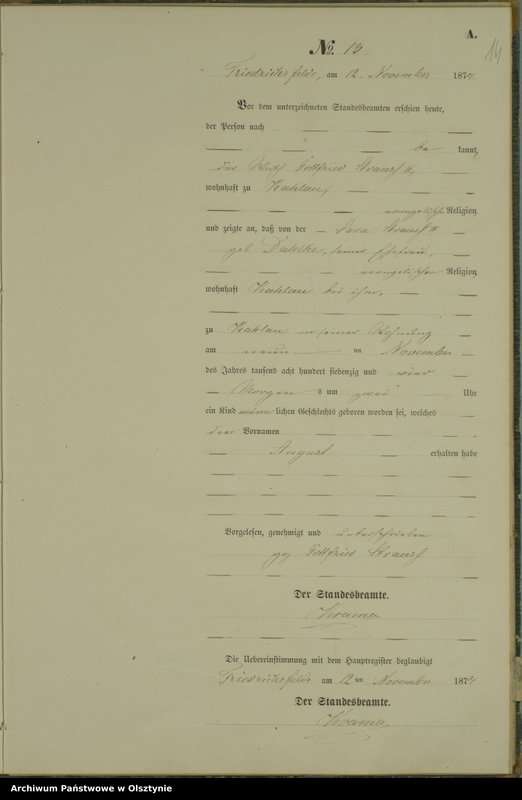 A.
14
No 13
Friedrichsfelde, am 12. November 1874
Vor dem unterzeichneten Standesbeamten erschien heute,
der Person nach
be kannt,
der Wirth Gottfried II,
wohnhaft zu Kahlau,
evangelischer Religion
und zeigte an, daß von der Sara
geb. seiner Ehefrau,
evangelischer Religion
wohnhaft Kahlau bei ihm,
zu Kahlau in seiner Wohnung
am neun ten November
des Jahres tausend acht hundert siebenzig und vier
Morgens um zwei Uhr
ein Kind männlichen Geschlechts geboren worden sei, welches
den Vornamen
August erhalten habe
Vorgelesen, genehmigt und unterschrieben
gz Gottfried
Der Standesbeamte.
Kramer
Die Uebereinstimmung mit dem Hauptregister beglaubigt
Friedrichsfelde am 12 ten November 1874
Der Standesbeamte.
Kramer
Archiwum Państwowe w Olsztynie